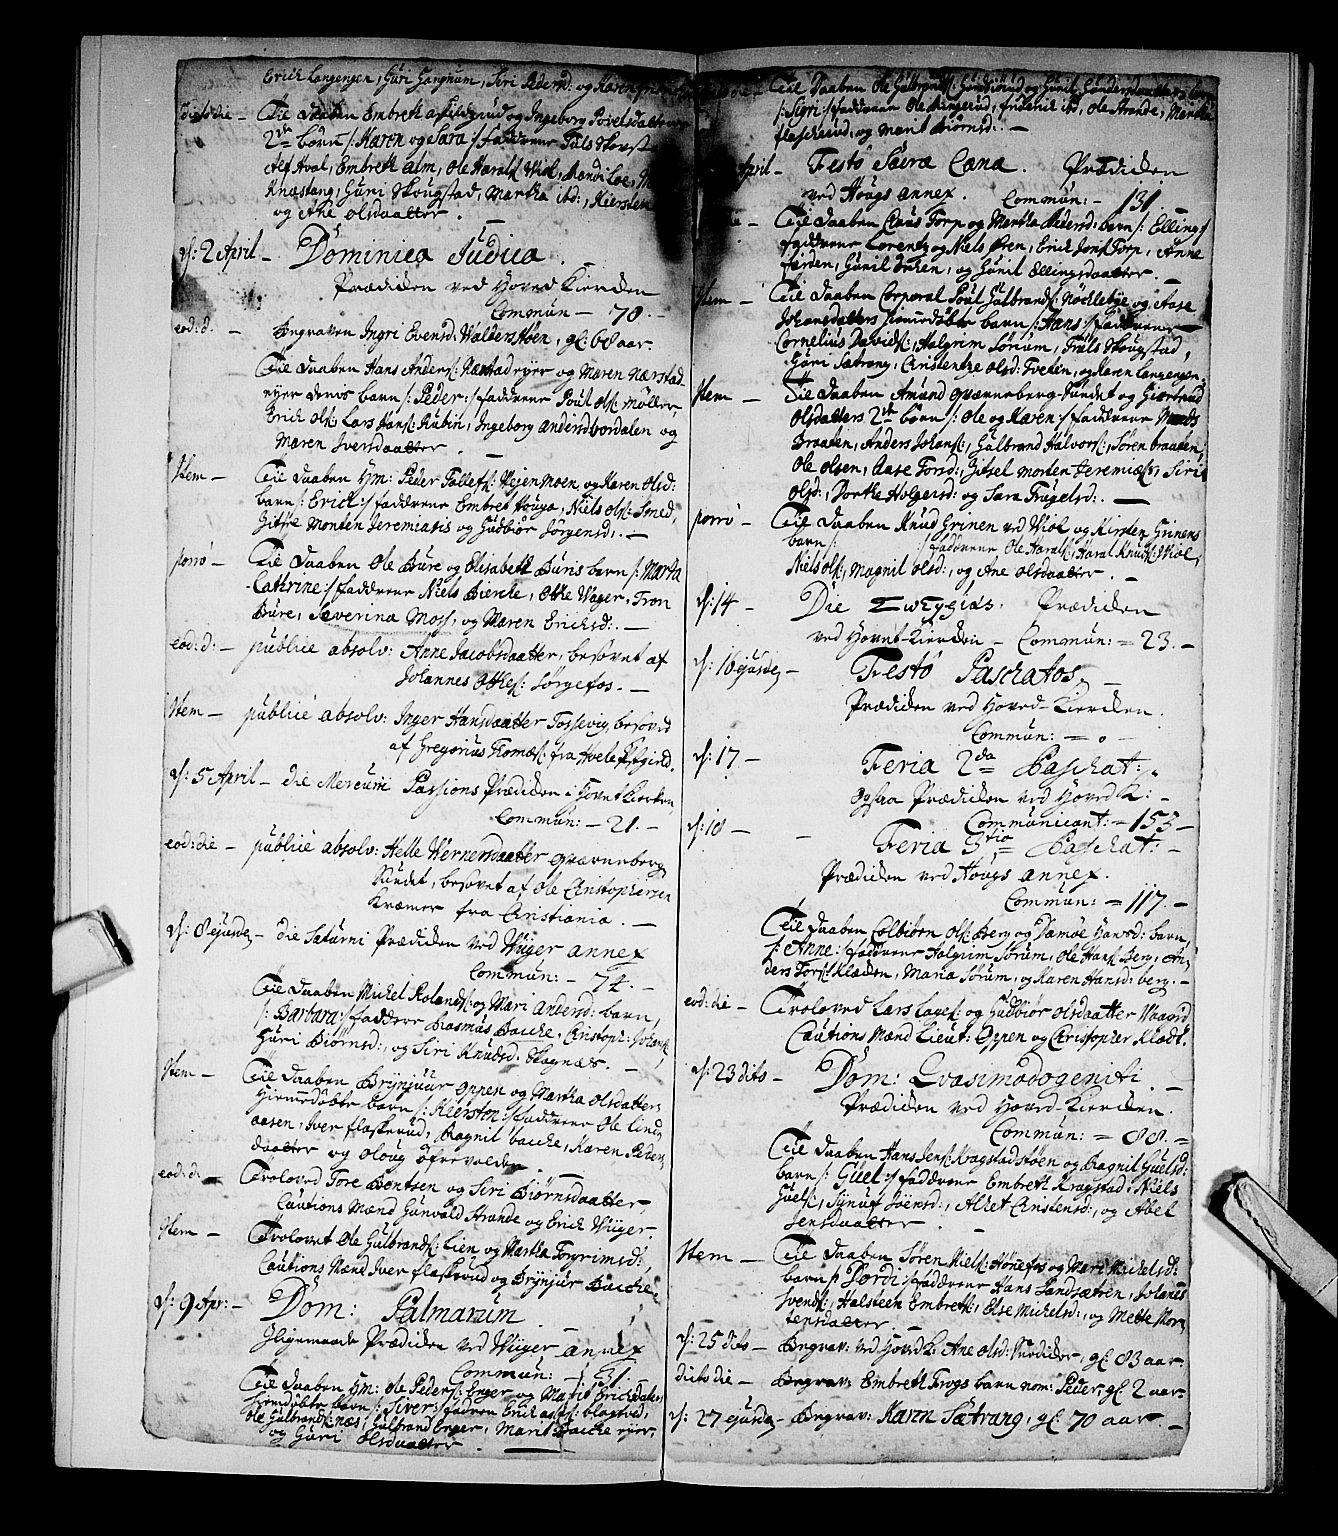 Erich Langengen, Guri Gangnum, Siri Pedersd: og Karen
dicto die — Til Daaben Embreth Askildsrud og Ingeborg Povelsdatters
2de børn /: Karen og Sara :/ fadderne Fals Skougst
Alf Hval, Embreth Alm, Ole Haralds: Wiol, Randi Loe,
Knæstang, Guri Skougstad, Martha ibd:, Kiersten
og Ane Olsdaatter. —
d: 2 April — Dominica Judica.
Prædiken ved Hoved Kircken
Commun — 70. —
eod: d. — Begraven Ingri Evensd: Walderstøen, gl: 68 aar.
Til Daaben Hans Anders: Nærstadeyer og Maren Nærstad
eyer deris barn /: Peder :/ fadderne Poul Ols: Møller
Erich Ols: Lars Hans: Rubin, Ingeborg Andersd bordalen og
Maren Iversdaatter. —
Item — Til Daaben Hm: Peder Tollefs: Vejenmoen og Karen Olsd:
barn /: Erich :/ fadderne Embret Houga, Niels Ols: Smed,
Gitlse Monten Jeremiasis og Gudbiør Jørgensd:. —
porro — Til Daaben Ole Bure og Elisabeth Buris barn /: Marta
Cathrine :/ fadderne Niels Biercke, Othe Wager, Tron
Bure, Severina Moss, og Maren Erichsd:. —
eod: d: — publicè absolv: Anne Jacobsdaatter, besovet af
Johannes Othes: Sørgefos. —
Item — publicè absolv: Inger Hansdaatter Tossevig, besovid
af Gregorius Thomes: fra Hvals Præstegield.
d: 5 April — die Mercurii Passions Prædiken i Hovet Kircken,
Commun: — 21. —
eod: die — publicè absolv: Helle Wernersdaatter qværneberg
Sundet, besovet af Ole Christophersen
Kræmer fra Christiania. —
d: 8 ejusde — die Saturni Prædiken ved Wiger annex
Commun: — 74. —
Til Daaben Michel Rolands: og Mari Andersd: barn
/: Barbara :/ faddere Rasmus Bache, Christoph: Johans:
Guri Biørnsd:, og Siri Knudsd: Skagnæs. —
Item — Til Daaben Brynjuur Oppen og Martha Olsdatters
hiemmedøbte barn /: Kiersten :/ fadderne Ole Lind
aasen, Iver flaskerud, Ragnil bache, Karen Peders
daatter og Oloug øfrevolden —
eod: d: — Troloved Tore Bentsen og Siri Biørnsdaatter,
Cautions Mænd Gunvald Strande og Erich Wiger.
Item — Trolovet Ole Gulbrands: Lien og Martha Torgrimsd:,
Cautions Mænd Iver flaskerud og Brynjur Bache.
d: 9 Apr: — Dom: Palmarum
Ligemaade Prædiken ved Wiger annex
Commun: — 51. —
Til Daaben Hm: Ole Peders: Enger og Marit Erichsdaters
hiemdøbte barn /: Siver :/ faddere Erich blagstved,
Ole Gulbrands: næs, Gulbrand Enger, Marit Bache eyer,
og Guri Olsdaatter. —
die — Til Daaben Ole Gulbrands: Hundsrud og Gunil Gundersdaatters barn
/: Sigri :/ fadderne Ole Ringerud, friderich ibd, Ole Strande, Martha
flaskerud, og Marit Biørnsd:. —
April — Festô Sacræ Cænæ. Prædiken
ved Hougs annex. Commun: — 131. —
Til Daaben Claus Torp og Martha Pedersd: barn /: Elling :/
fadderne Lorentz og Niels Øren, Erich Jons: Torp, Anne
førden, Gunil Inhen, og Gunil Ellingsdaatter. —
Item — Til Daaben Corporal Poul Gulbrands: Nøcklebye og Aase
Johansdatters hiemmedøbte barn /: Hans :/ fadderne
Cornelius Davids:, Halgrim Sørum, Frols Skougstad,
Guri Sætrang, Christentze Olsd: Tveten, og Karen Langengen.
Item — Til Daaben Amund qværneberg-Sundet og Giertrud
Olsdatters 2de børn /: Ole og Karen :/ fadderne Mads
Braaten, Anders Johans:, Gulbrand Halvors:, Søren braaten,
Ole Olsen, Aase Torsd:, Gitsel Morten Jeremiæs:, Siri
Olsd:, Dorthe Holgersd: og Sara Trugelsd:. —
porro — Til Daaben Knud Grinen ved Wiol og Kirsten Grinens
barn /: :/ fadderne Ole Harals:, Haral Knuds: Wiol,
Niels Ols:, Magnil Olsd:, og Ane Olsdaatter. —
d: 14 — Die Prædiken
ved Hovet-Kircken — Commun: — 23. —
d: 16 ejusde — Festô Paschatos. —
Prædiken ved Hoved-Kircken.
Commun: — 0 —
d: 17 — Feria 2da Paschat:
Ogsaa Prædiken ved Hoved K: —
Communicant: — 153 —
d: 18 — Feria 3tia Paschat: —
Prædiken ved Hougs annex.
Commun: — 117. —
Til Daaben Colbiørn Ols: Berg og Damøe Hansd: barn
/: Anne :/ fadderne Halgrim Sørum, Ole Hans: Berg, An
ders Tors: Klækken, Maria Sørum, og Karen Hansd: berg: —
eod: die — Trolovved Lars Lars: og Gudbiør Olsdaatter Vaarud
Cautions Mænd Lieut: Oppen og Christopher Klædt.
d: 23 dito — Dom: Qvasimodogeniti. —
Prædiken ved Hoved-Kircken.
Commun: — 88. —
Til Daaben Hans Jens: Kragstadstøen og Ragnil Guelsd:
barn /: Guel :/ fadderne Embreth Kragstad, Niels
Guels:, Synuf Joensd:, Allet Christensd:, og Abel
Jensdaatter. —
Item — Til Daaben Søren Niels: Hønefos og Mari Michelsd:
barn /: Jordi :/ fadderne Hans Sandsætren, Johanes
Svends:, Halsteen Embreths:, Else Michelsd:, og Mette Mor
tensdaatter. —
d: 25 dito — Begrav: ved Hoved K: Ane Olsd: gl: 83 aar.
dicto die — Begrav: Embreth Frogs barn nom: Peder, gl: 2 aar.
d: 27 ejusde — Begrav: Karen Sætrang, gl: 70 aar —